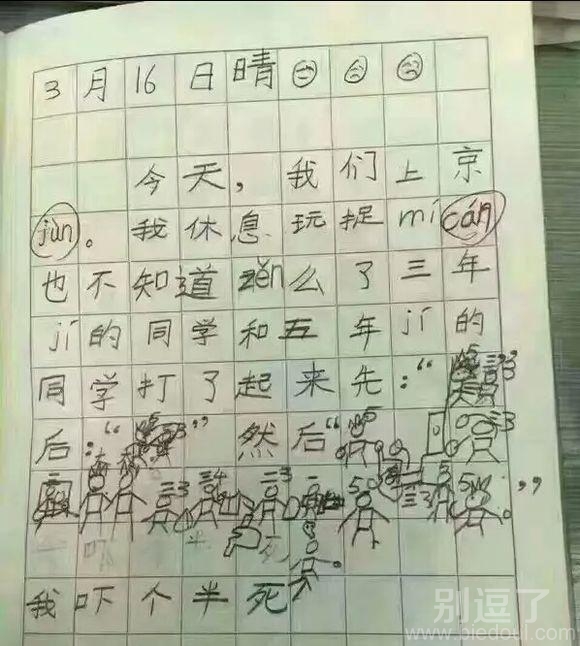 3月16日晴
今天,我们上京
jùn。我休息玩捉mí cán
也不知道zěn么了三年
jí的同学和五年jí的
同学打了起来先:“
后:“”然后“
”
我吓个半死
别逗了
www.biedoul.com